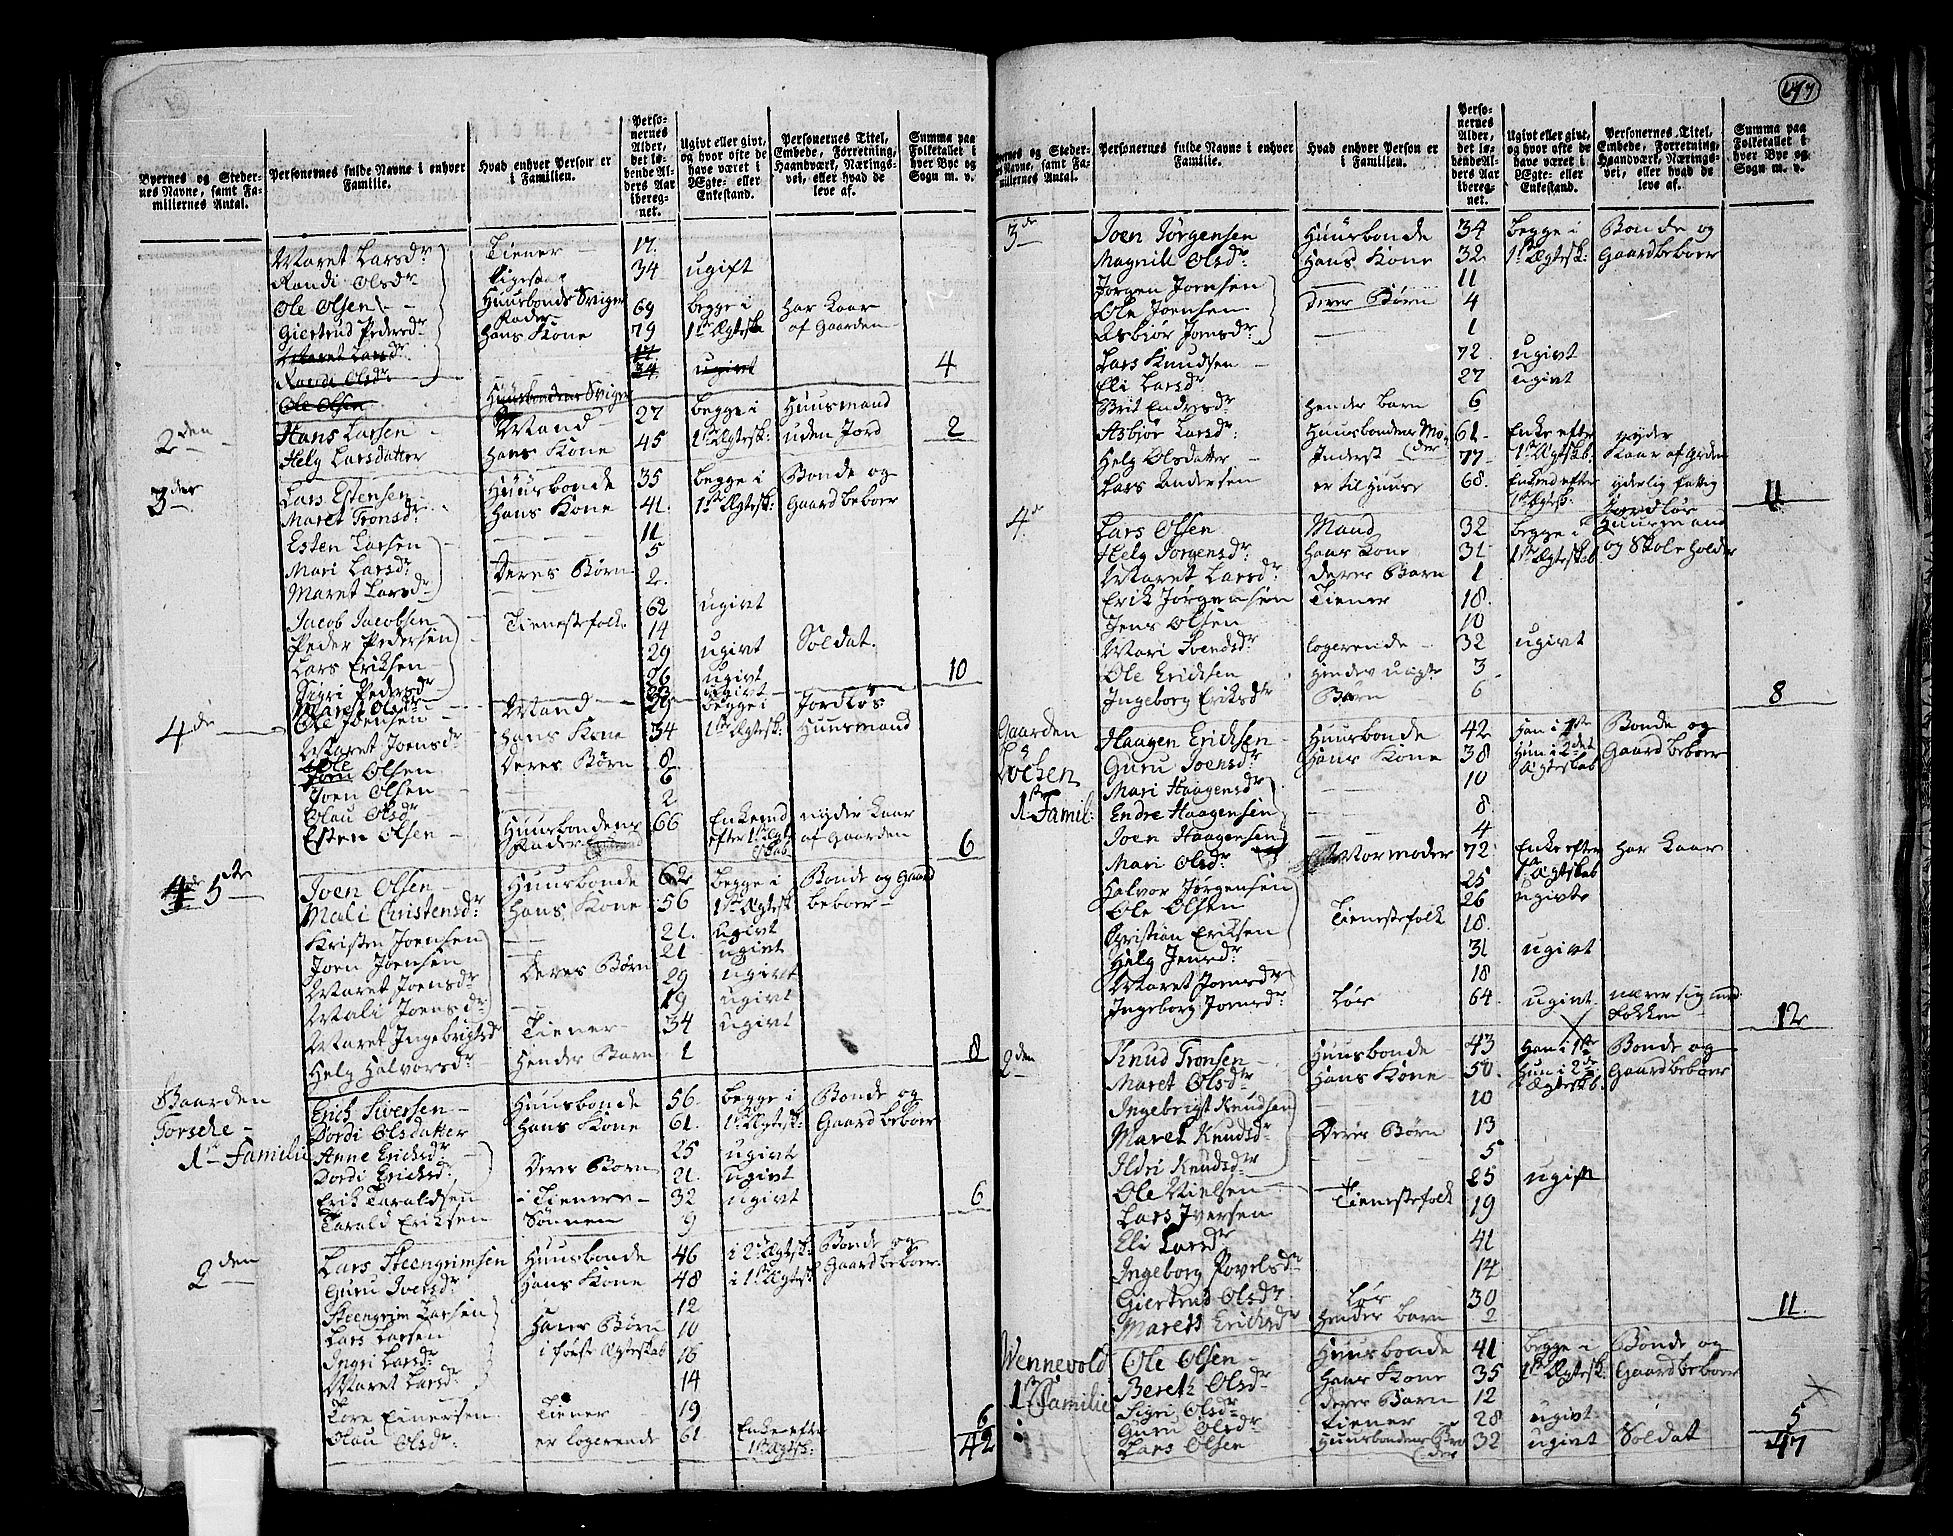 Byernes og Steder-
nes Navne, samt Fa-
miliernes Antal.
Personernes fulde Navne i enhver
Familie.
Hvad enhver Person er
i Familien.
Perso-
nernes
Alder,
det lø-
bende Al-
ders Aar
ibereg-
net.
Ugivt eller givt,
og hvor ofte de
have været i
Ægte- eller
Enkestand.
Personernes Titel,
Embede, Forretning,
Haandværk, Nærings-
vei, eller hvad de
leve af.
Summa paa
Folketallet i
hver Bye og
Sogn m. v.
Maret Larsdr Tiener 17.
Randi Olsdr 34 ugift
Ole Olsen Huusbonds Sviger Fader 69 begge i har Kaar
Giertrud Pedersdr Hans Kone 79 1ste Ægtesk af Gaarden
Maret Larsdr 17. 4
Randi Olsdr 34 ugivt
Ole Olsen Huusbondens Sviger
2den Hans Larsen Mand 27 begge i Huusmand
Helg Larsdatter Hans Kone 45 1ste Ægtesk: uden Jord 2
3die Lars Estensen Huusbonde 35 begge i Bonde og
Maret Tronsdr Hans Kone 41. 1ste Ægtesk: Gaardbeboer
Esten Larsen 11
Mari Larsdr Deres Børn 5
Maret Larsdr 2.
Jacob Jacobsen Tienestefolk 62 ugivt
Peder Pedersen 14
Lars Eriksen 29 ugivt Soldat.
Sigri Pedersdr 26 ugivt
Maret Olsdr 23 ugivt 10
4de Ole Joensen Mand 39 begge i Jordløs
Maret Joensdr Hans Kone 34 1ste Ægtesk: Huusmand
Ole Olsen Deres Børn 8
Joen Olsen 6
Olau Olsdr 2
Esten Olsen Huusbondens Fader 66 Enkemd efter 1ste Ægteskab nyder Kaar af Gaarden 6
5te Joen Olsen Huusbonde 62 begge i Bonde og Gaard
Mali Christensdr Hans Kone 56 1ste Ægtesk beboer
Kristen Joensen 21. ugivt
Joen Joensen 21 ugivt
Maret Joensdr Deres Børn 29 ugivt
Mali Joensdr 19 ugivt
Maret Ingebrigtsdr Tiener 34 ugivt
Helg Halvorsdr Hendes Barn 1 8
Gaarden
Torske
1te Familie
Erich Siversen Huusbonde 56. begge i Bonde og
Dordi Olsdatter Hans Kone 61. 1ste Ægtesk: Gaardbeboer
Anne Ericksdr 25 ugivt
Dordi Ericksdr Deres Børn 21. ugivt
Erik Taraldsen Tienere 32 ugivt
Tarald Eriksen Sønnen 9 6
2den Lars Steengrimsen Huusbonde 46 i 2den Ægtesk: Bonde og
Guru Iversdr Hans Kone 48 i 1ste Ægtesk Gaardbeboer
Steengrim Larsen 12
Lars Larsen Hans Børn 10
Ingri Larsdr i første Ægteskab 16
Maret Larsdr 14
Tore Einersen Tiener 19
Olau Olsdr er logerende 61 Enke efter 1ste Ægtesk: 6
42
Byernes og Steder-
nes Navne, samt Fa-
miliernes Antal.
Personernes fulde Navne i enhver
Familie.
Hvad enhver Person er
i Familien.
Perso-
nernes
Alder,
det lø-
bende Al-
ders Aar
ibereg-
net.
Ugivt eller givt,
og hvor ofte de
have været i
Ægte- eller
Enkestand.
Personernes Titel,
Embede, Forretning,
Haandværk, Nærings-
vei, eller hvad de
leve af.
Summa paa
Folketallet i
hver Bye og
Sogn m. v.
3de Joen Jørgensen Huusbonde 34 begge i Bonde og
Magnill Olsdr Hans Kone 32 1ste Ægtesk: Gaardbeboer
Jørgen Joensen 11
Ole Joensen deres Børn 4
Asbiør Joensdr 1
Lars Knudsen 72. ugivt
Eli Larsdr 27 ugivt
Brit Endresdr hendes barn 6
Asbiør Larsdr: Huusbondens Moder 61. Enke efter nyder
Helg Olsdatter Inderst 77 1ste Ægtesk. Kaar af Grden
Lars Andersen er til Huuse 68. Enkemd efter 1ste Ægtesk: yderlig fattig 11
4de Lars Olsen Mand 32 begge i Jordløs Huusmand
Helg Jørgensdr hans Kone 31 1ste Ægteskab og Skoleholder
Maret Larsdr deres Barn 1
Erik Jørgensen Tiener 18.
Jens Olsen 10
Mari Svendsdr logerende 32 ugivt
Ole Ericksen hendes uægte 3
Ingeborg Eriksdr Børn 6 8
Gaarden
Løchen
1te Famil:
Haagen Ericksen Huusbonde 42 Han i 1ste Bonde og
Guru Joensdr Hans Kone 38 Hun i 2det Ægteskab Gaardbeboer
Mari Haagensdr 10
Endre Haagensen 8
Joen Haagensen 4
Mari Olsdr Mormoder 72 Enke efter 1ste Ægteskab har Kaar
Halvor Jørgensen 25
Ole Olsen 26 ugivte
Christian Eriksen Tienestefolk 18.
Helg Jensdr 31 ugivt
Maret Joensdr 18
Ingeborg Joensdr Løs 64 ugivt nærer sig med Rokken 12
2den Knud Tronsen Huusbonde 43 Han i 1ste Bonde og
Maret Olsdr Hans Kone 50. Hun i 2de Ægteskb. Gaardbeboer
Ingebrigt Knudsen 10
Maret Knudsdr Deres Børn 13
Ildri Knudsdr 5
Ole Nielsen 25 ugift
Lars Iversen Tienestefolk 19
Eli Larsdr 41
Ingeborg Povelsdr 14
Giertrud Olsdr Løs 30
Maret Ericksdr Hendes barn 2 11.
Wennevold
1te Familie
Ole Olsen Huusbonde 41 begge i Bonde og
Bereth Olsdr Hans Kone 35 1ste Ægtesk: Gaardbeboer
Sigri Olsdr deres Barn 12
Guru Olsdr Tiener 28 ugivt
Lars Olsen Huusbondens Broder 32 ugivt Soldat 5
47